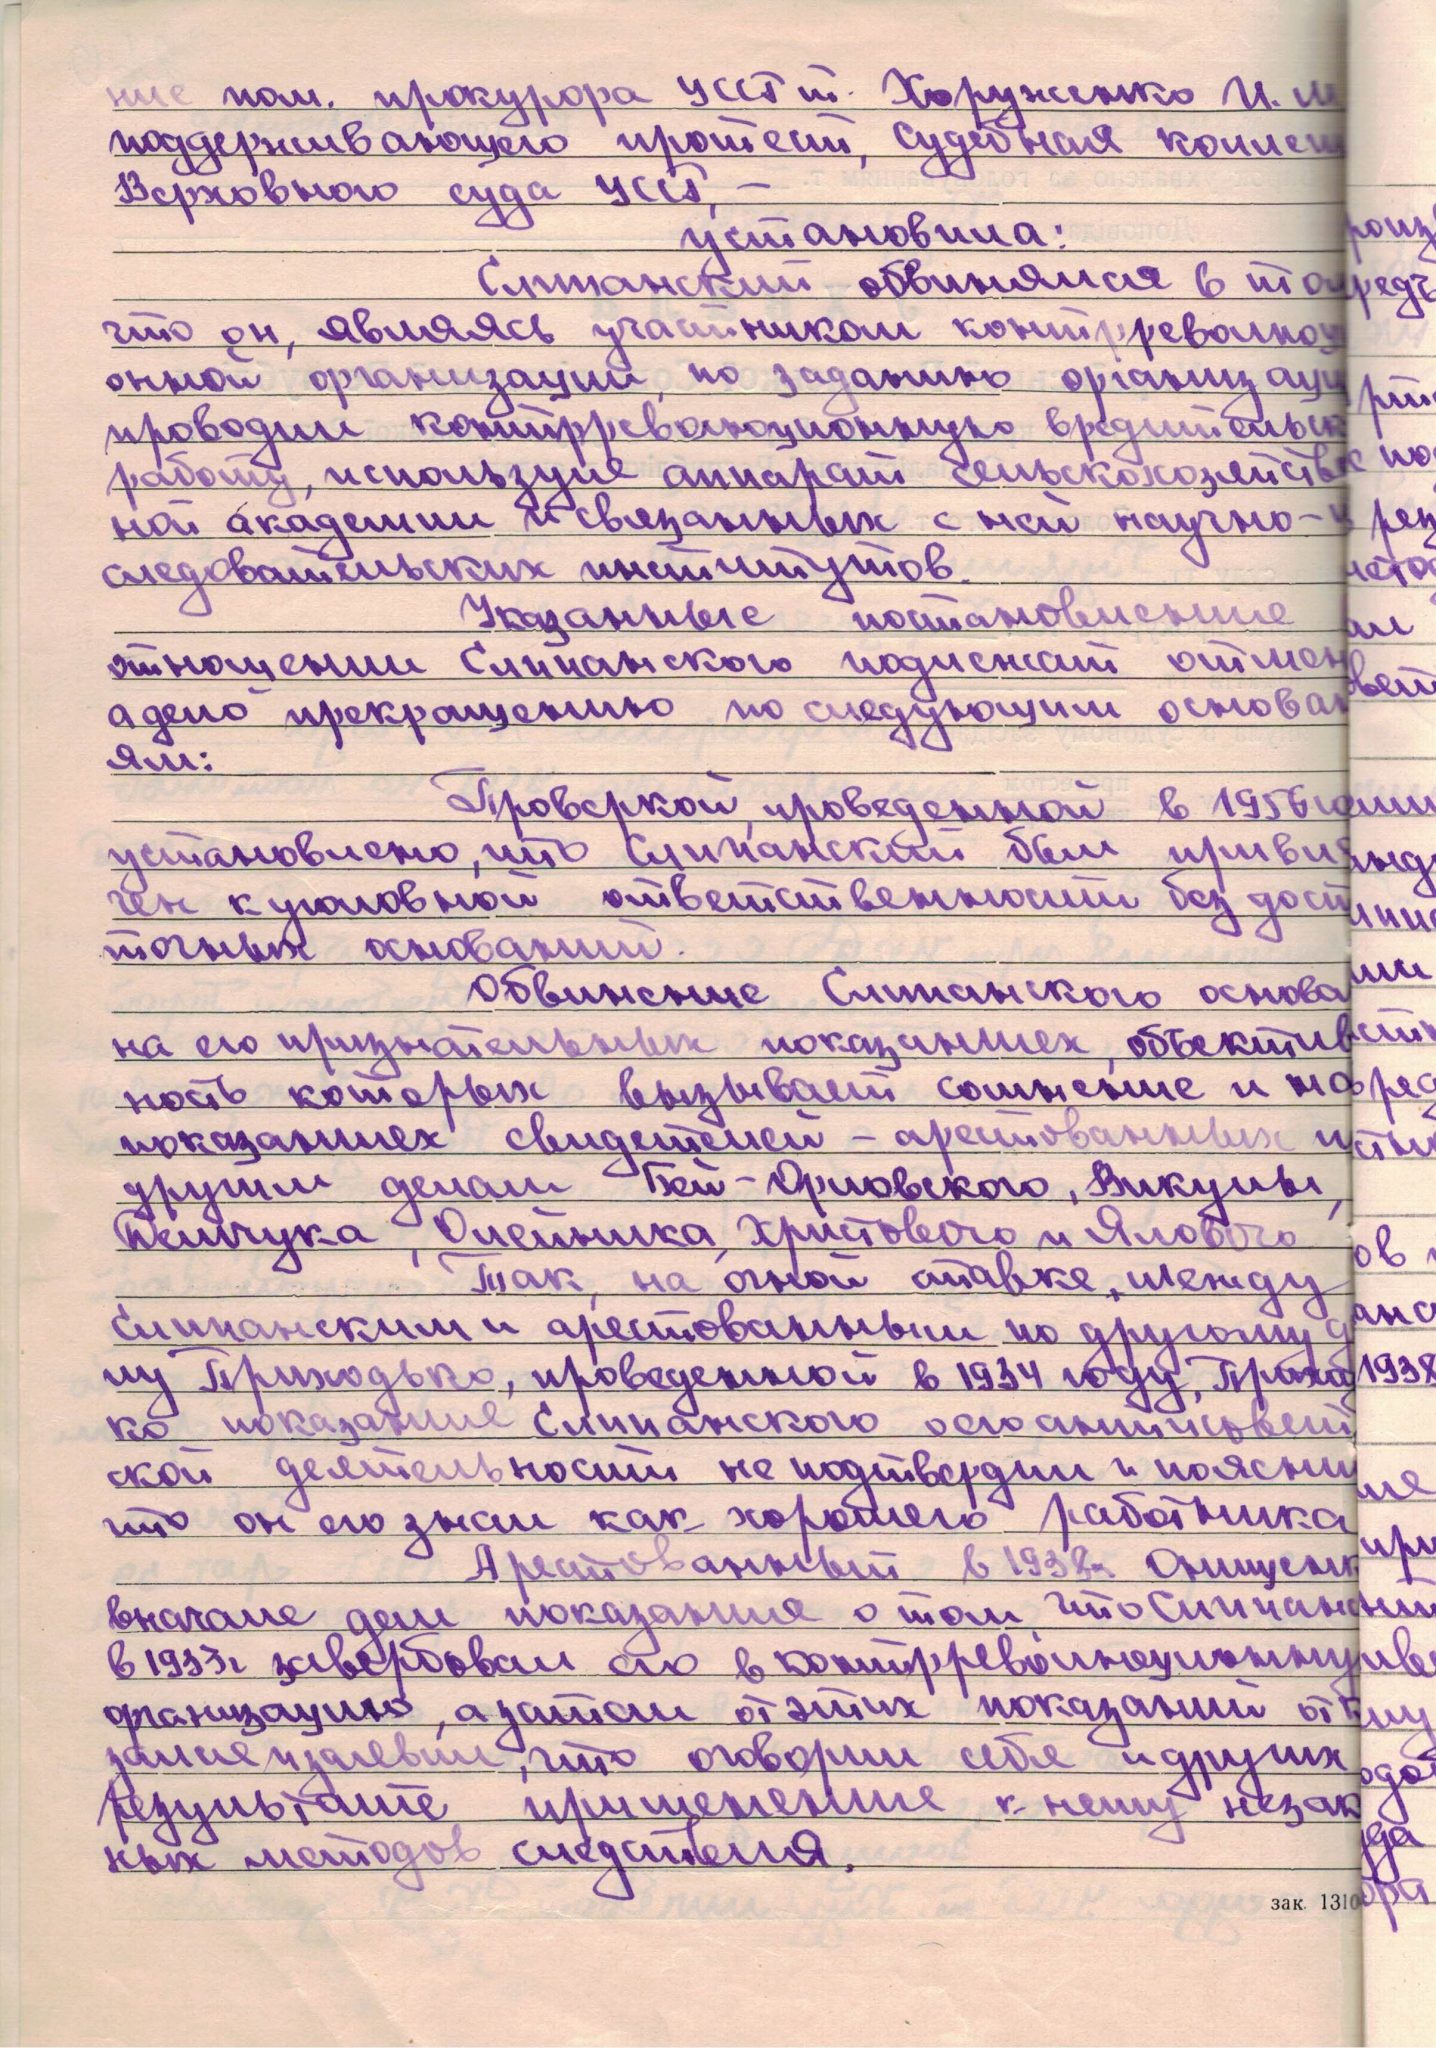 ние пом. прокурора УССР т. Хоруженко И. М
поддерживающего протест, судебная коллег
Верховного суда УССР, –
установила:
Слипанский обвинялся в том
что он, являясь участником контрреволюц
онной организации, по заданию организаци
проводил контрреволюционную вредительск
работу, используя аппарат сельскохозяйств
ной академии и связанных с ней научно-и
следовательских институтов.
Указанные постановление
отношении Слипанского подлежат отмен
а дело прекращению по следующим основан
ям:
Проверкой, проведенной в 1956 г
установлено, что Слипанский был привле
чен к уголовной ответственности без дост
точных оснований.
Обвинение Слипанского основа
на его признательных показаниях, объектив
ность которых вызывает сомнение и на
показаниях свидетелей – арестованных п
другим делам Бей-Орловского, Викулы,
Демчука, Олейника, Христового и Ялового
Так, на очной ставке, между
Слипанским и арестованным по другому д
лу Приходько, проведенной в 1934 году, Приход
ко показание Слипанского о его антисовет
ской деятельности не подтвердил и пояснил
что он его знал как хорошего работника
Арестованный в 1938г Онищенк
вначале дал показания о том, что Слипанс
в 1933г завербовал его в контрреволюционну
организацию, а затем от этих показаний отк
зался и заявил, что оговорил себя и других
результате применение к нему незак
ных методов следствия.
зак. 1310